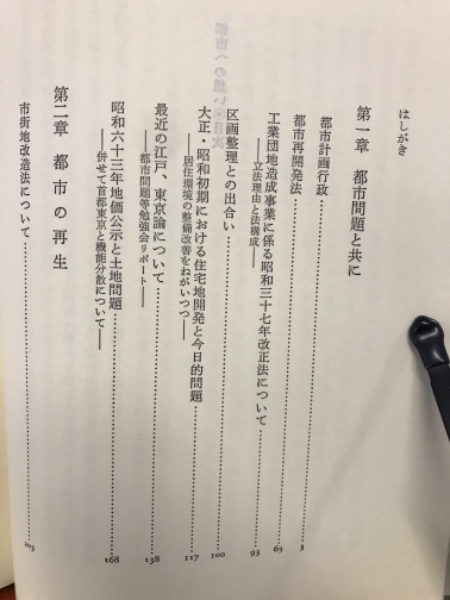 はしがき
第一章 都市問題と共に
都市計画行政……3
都市再開発法……65
工業団地造成事業に係る昭和三十七年改正法について……93
――立法理由と法構成――
区画整理との出合い……100
大正・昭和初期における住宅地開発と今日的問題……117
――居住環境の整備改善をねがいつつ――
最近の江戸、東京論について……138
――都市問題等勉強会リポート――
昭和六十三年地価公示と土地問題……168
――併せて首都東京と機能分散について――
第二章 都市の再生
市街地改造法について……203